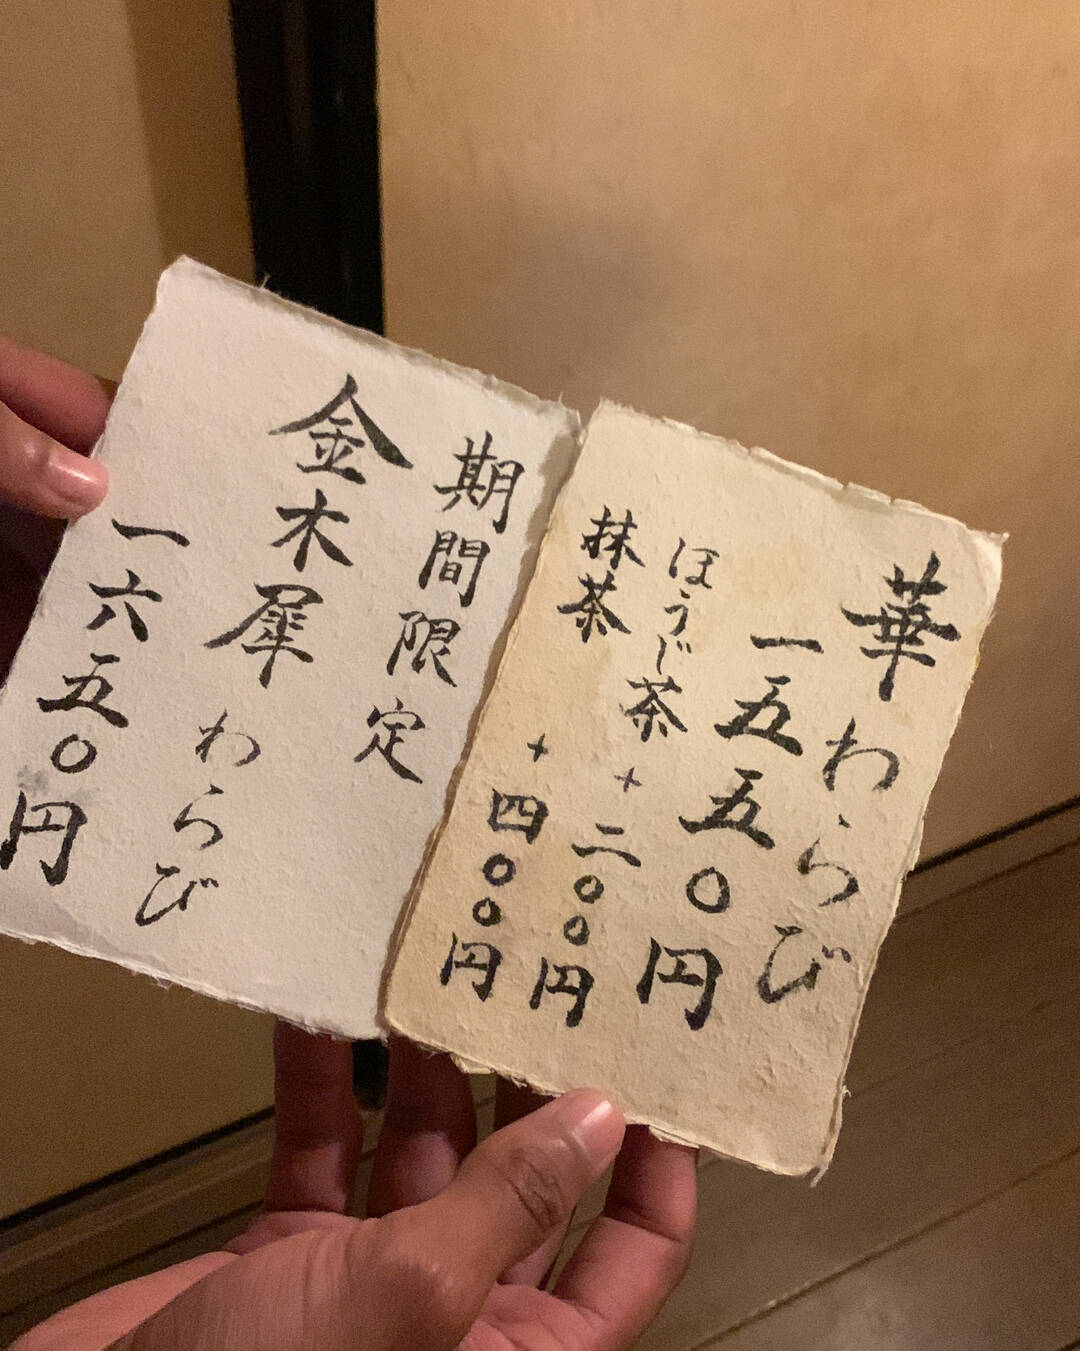 華わらび
一五五〇円
ほうじ茶+二〇〇円
抹茶+四〇〇円
期間限定
金木犀わらび
一六五〇円